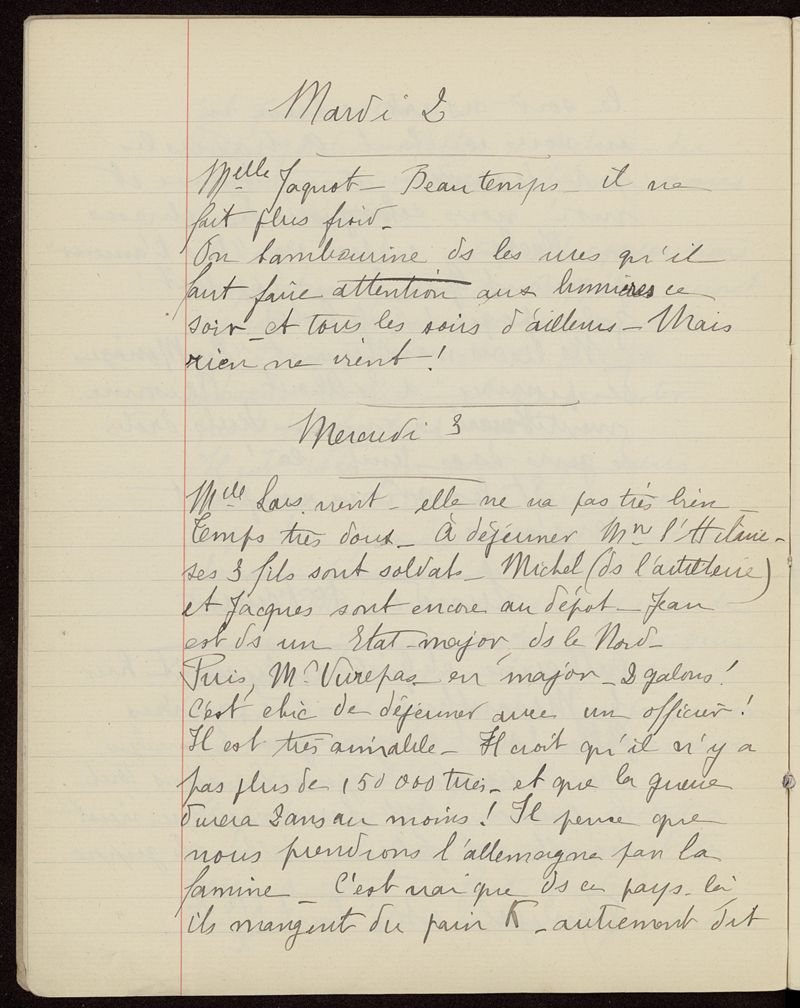 Mardi 2
Melle Jaquot – Beau temps – il ne
fait plus froid –
On tambourine ds les rues qu'il
faut faire attention aux lumières ce
soir – et tous les soirs d'ailleurs – Mais
rien ne vient !
Mercredi 3
Melle vient – elle ne va pas très bien –
Temps très doux – À déjeuner Mr
ses 3 fils sont soldats – Michel (ds l'artillerie)
et Jacques sont encore au dépot – Jean
est ds un Etat-major ds le Nord –
Puis, Mr Vurepas en major – 2 galons !
C'est chic de déjeuner avec un officier !
Il est très aimable – Il croit qu'il n'y a
pas plus de 150 000 tués – et que la guerre
durera 2 ans au moins ! Il pense que
nous prendrons l'allemagne par la
famine – C'est vrai que ds ce pays-là
ils mangent du pain K – autrement dit